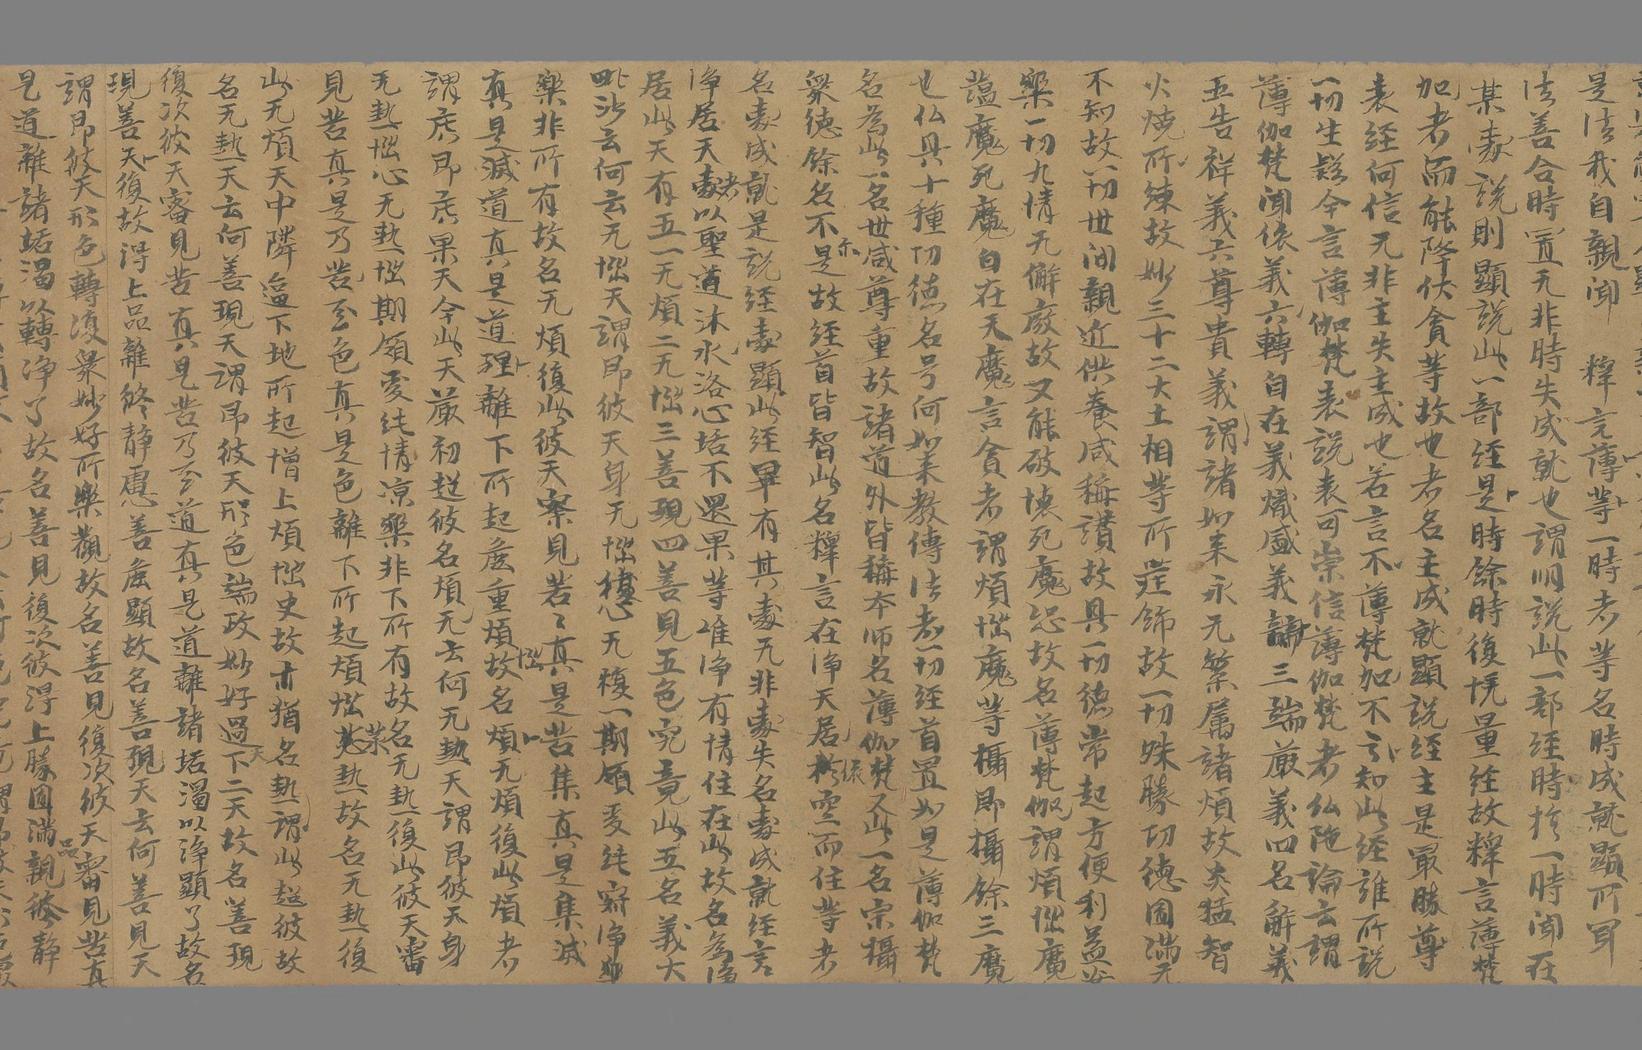 是法我自親聞 釋言薄等一時者等名時成就顯所聞
法善合時置无非時失成就也謂明說此一部經時於一時聞在
某處說則顯說此一部經是時餘時復恍量經故釋言薄梵
加者而能降伏貪等故也者名主成就顯說經主是最勝尊
表經何信无非主失主成也若言不薄梵加不之知此經誰所說
一切生疑今言薄伽梵表說表可崇信薄伽梵者仏地論云謂
薄伽梵聞依義六轉自在義熾盛義三端嚴義四名解義
五告祥義六尊貴義謂諸如来永无繁属諸煩故炎猛智
火燒所練故妙三十二大士相等所莊飾故一切殊勝切德圎滿无
不知故一切世间親近供養咸稱讃故具一切德常起方便利益
樂一切九情无懈廢故又能破壊死魔恐故名薄梵伽謂煩惱魔
蕴魔死魔自在天魔言貪者謂煩惱魔等攝即攝餘三魔
也仏具十種切徳名号何如来教傳法者一切經首置如是薄伽梵
名為此一名世咸尊重故諸道外皆稱本師名薄伽梵又此一名宗攝
衆徳餘名不是故經首皆智此名釋言在淨天居於空而住等者
名處成就是說經處顯此經畢有其處无非處失名處成就經言
淨居天處以聖道沐水洛心垢不還果等唯淨有情住在此故名為淨
居此天有五一无煩二无惱三善現四善見五色究竟此五名義大
毗沙云何云无惱天謂即彼天身无惱穗心无穢一期領受純寂淨
樂非所有故名无煩復此彼天察見若〻真是苦集真是集滅
真是滅道真是道理離下所起麁重煩故名煩无煩復此煩者
謂麁即麁果天今此天嚴初超彼名煩无云何无熱天謂即彼天身
无熱惱心无熱惱期領受純情凉樂非下所有故名无熱復此彼天審
見苦真是乃苦至色真是色離下所起煩惱熱故名无熱復
此无煩天中隣逼下地所起增上煩惱史故才猶名熱謂此超彼故
名无熱天云何善現天謂即彼天形色端政妙好過下二天故名善現
復次彼天審見苦真見苦乃至道真是道離諸垢濁以淨顯了故名
現善天復故得上品離終静慮善麁顯故名善現天云何善見天
謂即彼天形色轉復衆妙好所樂觀故名善見復次彼天審見苦真
是道離諸垢濁以轉净了故名善見復次彼得上勝圎滿親終静